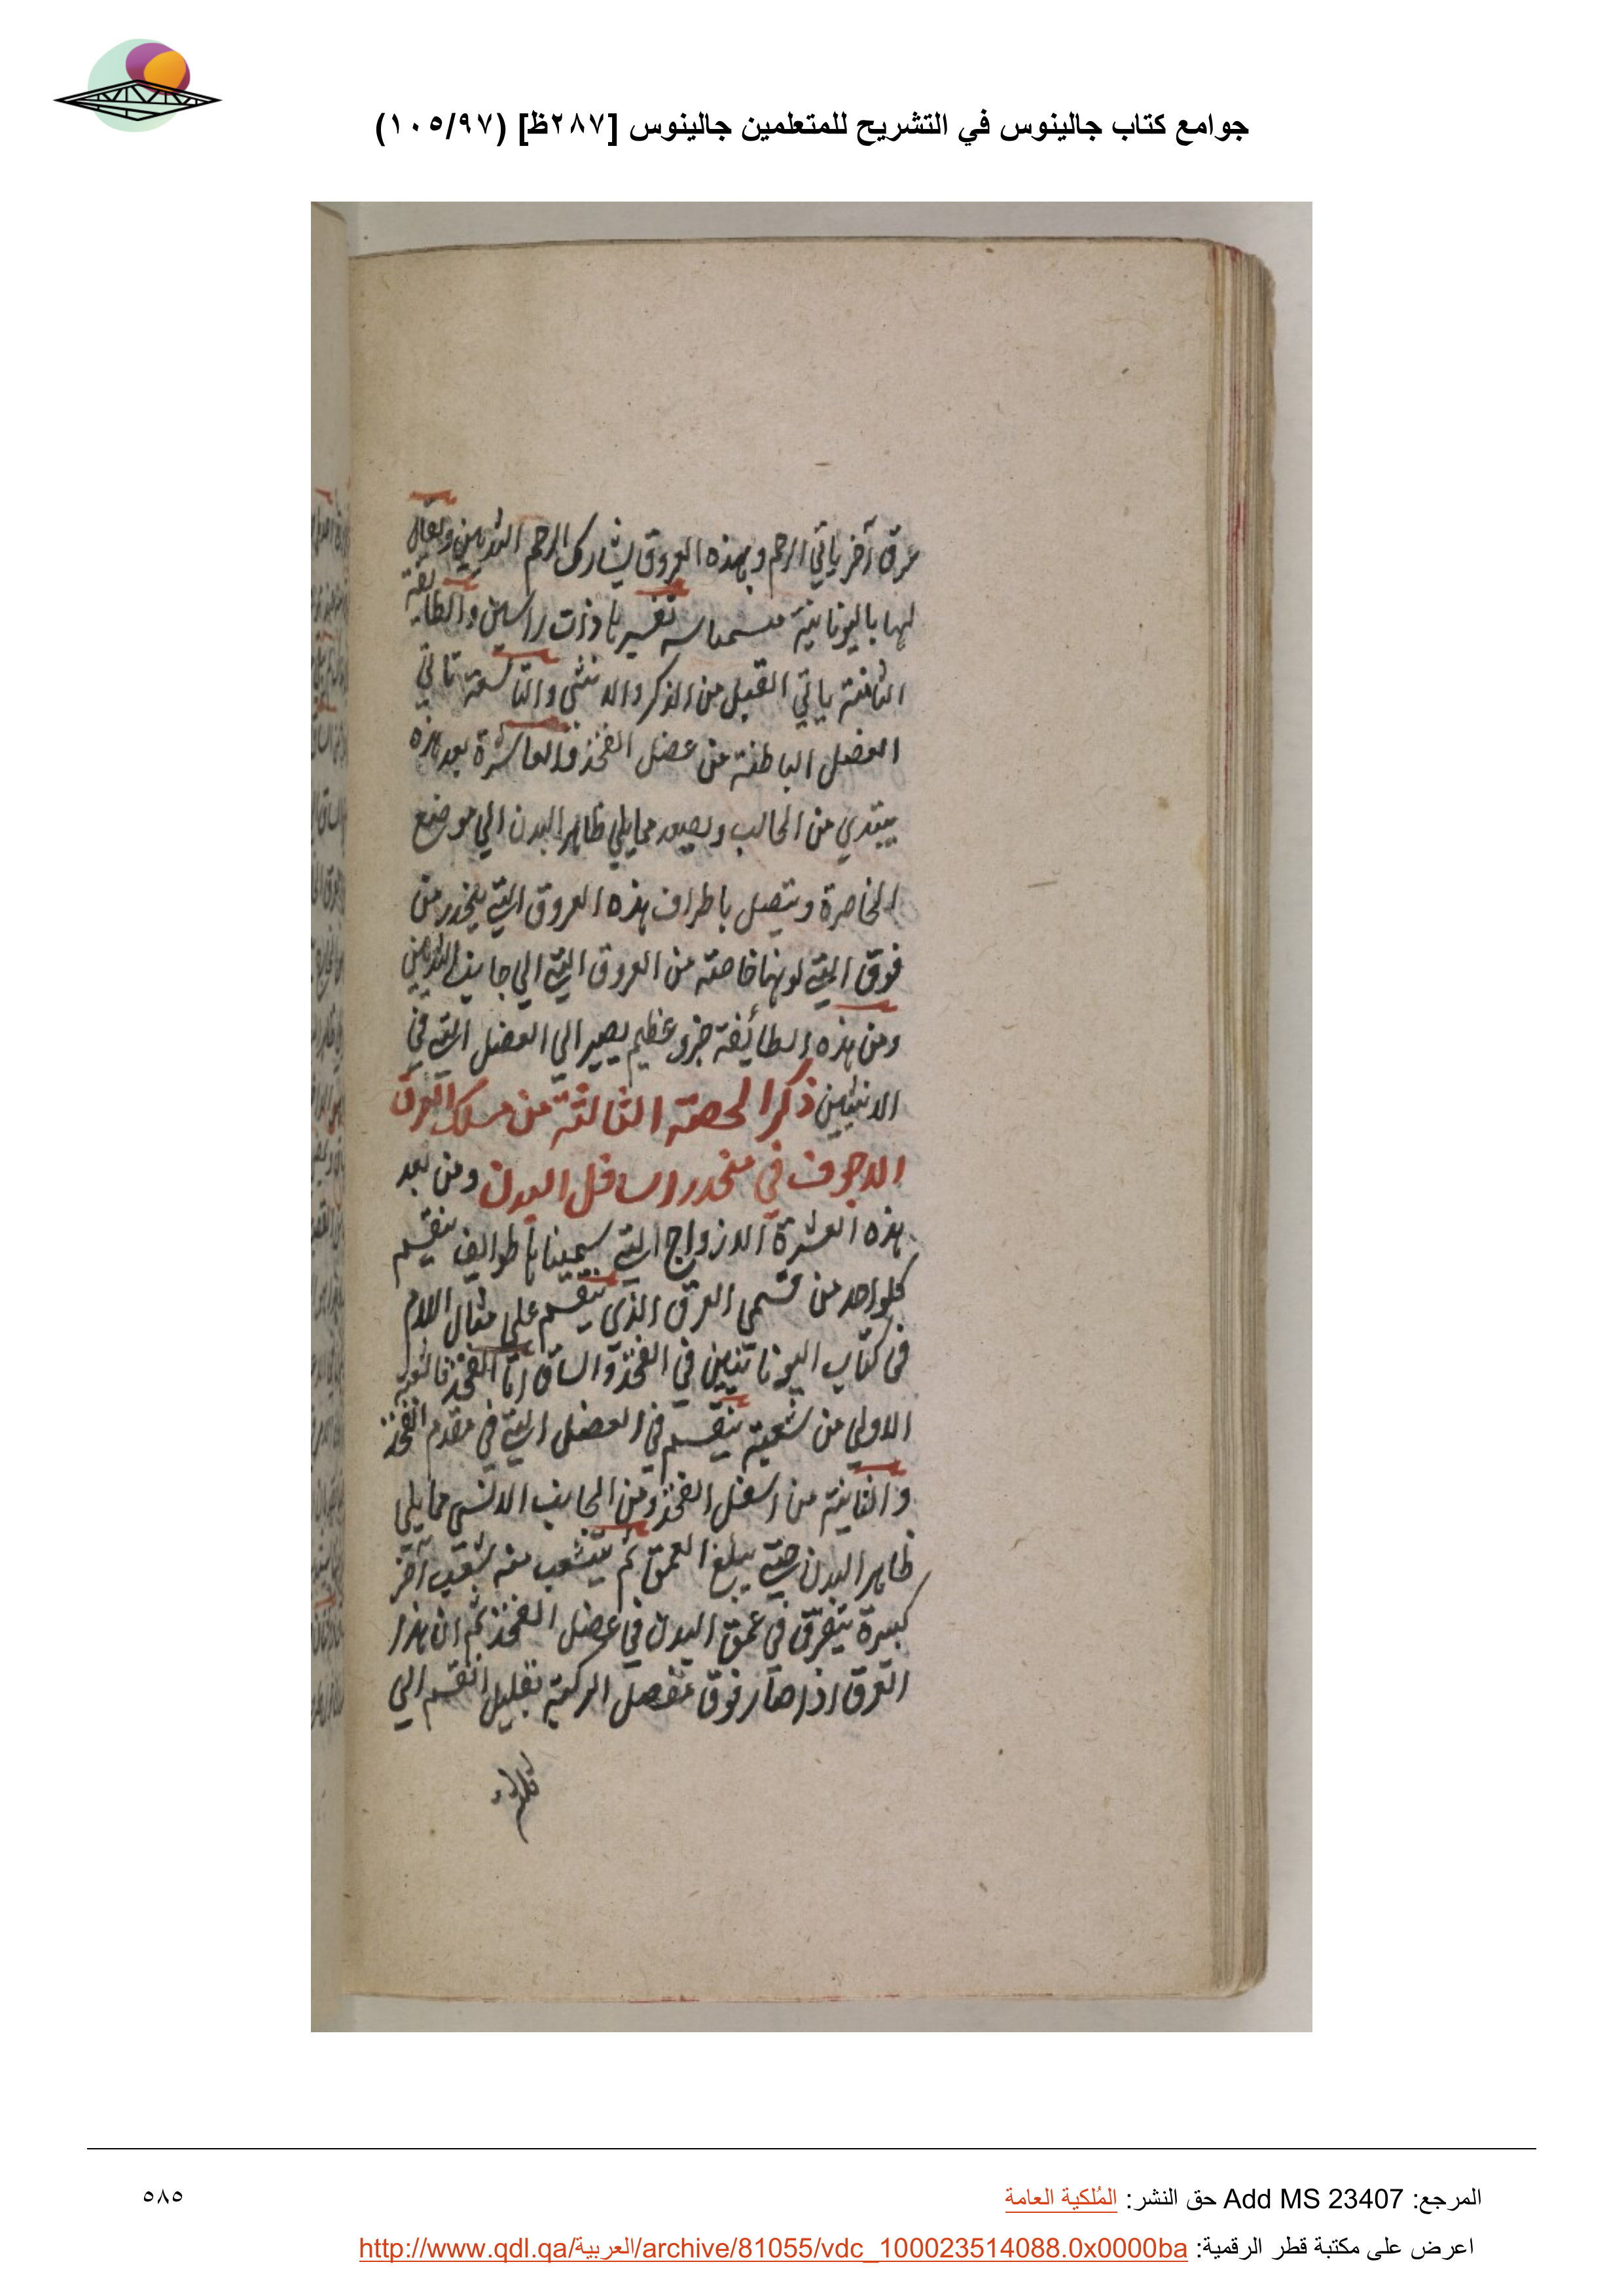 جوامع كتاب جالينوس في التشريح للمتعلمين جالينوس [٢٨٧ظ] (١٠٥/٩٧)
عرق آخر ياتي الرحم وبهذه العروق يشارك الرحم الثديين ويقال
لها باليونانية تفسيرها ذات راسين والطايفة
الثامنة ياتي القبل من الذكر والانثى والتاسعة تاتي
العضل الباطنة من عضل الفخذ والعاشرة بعد هذه
يبتدي من الحالب ويصعد مما يلي ظاهر البدن الي موضع
الخاصرة ويتصل باطراف هذه العروق التي ينحدر من
فوق التي لونها خاصة من العروق التي الي جانب الثديين
ومن هذه الطائفة جزو عظيم يصير الي العضل التي في
الانثيين ذكر الحصة الثالثة من مسلك العرق
الاجوف في منحدر اسافل البدن ومن بعد
هذه العشرة الازواج التي سميناها طوايف ينقسم
كلواحد من قسمي العرق الذي ينقسم علي مثال اللام
في كتاب اليونانيين في الفخذ والساق اما الفخذ فالشعبة
الاولي من شعبه ينقسم في العضل التي في مقدم الفخذ
والثانية من اسفل الفخذ ومن الجانب الانسي مما يلي
ظاهر البدن حتي يبلغ العمق ثم يتشعب منه شعب آخر
كبيرة يتفرق في عمق البدن في عضل الفخذ ثم ان هذا
العرق اذا صار فوق مفصل الركبة بقليل انقسم الي
ثلاثة
المرجع: Add MS 23407 حق النشر: المُلكية العامة
٥٨٥
اعرض على مكتبة قطر الرقمية: http://www.qdl.qa/العربية/archive/81055/vdc_100023514088.0x0000ba